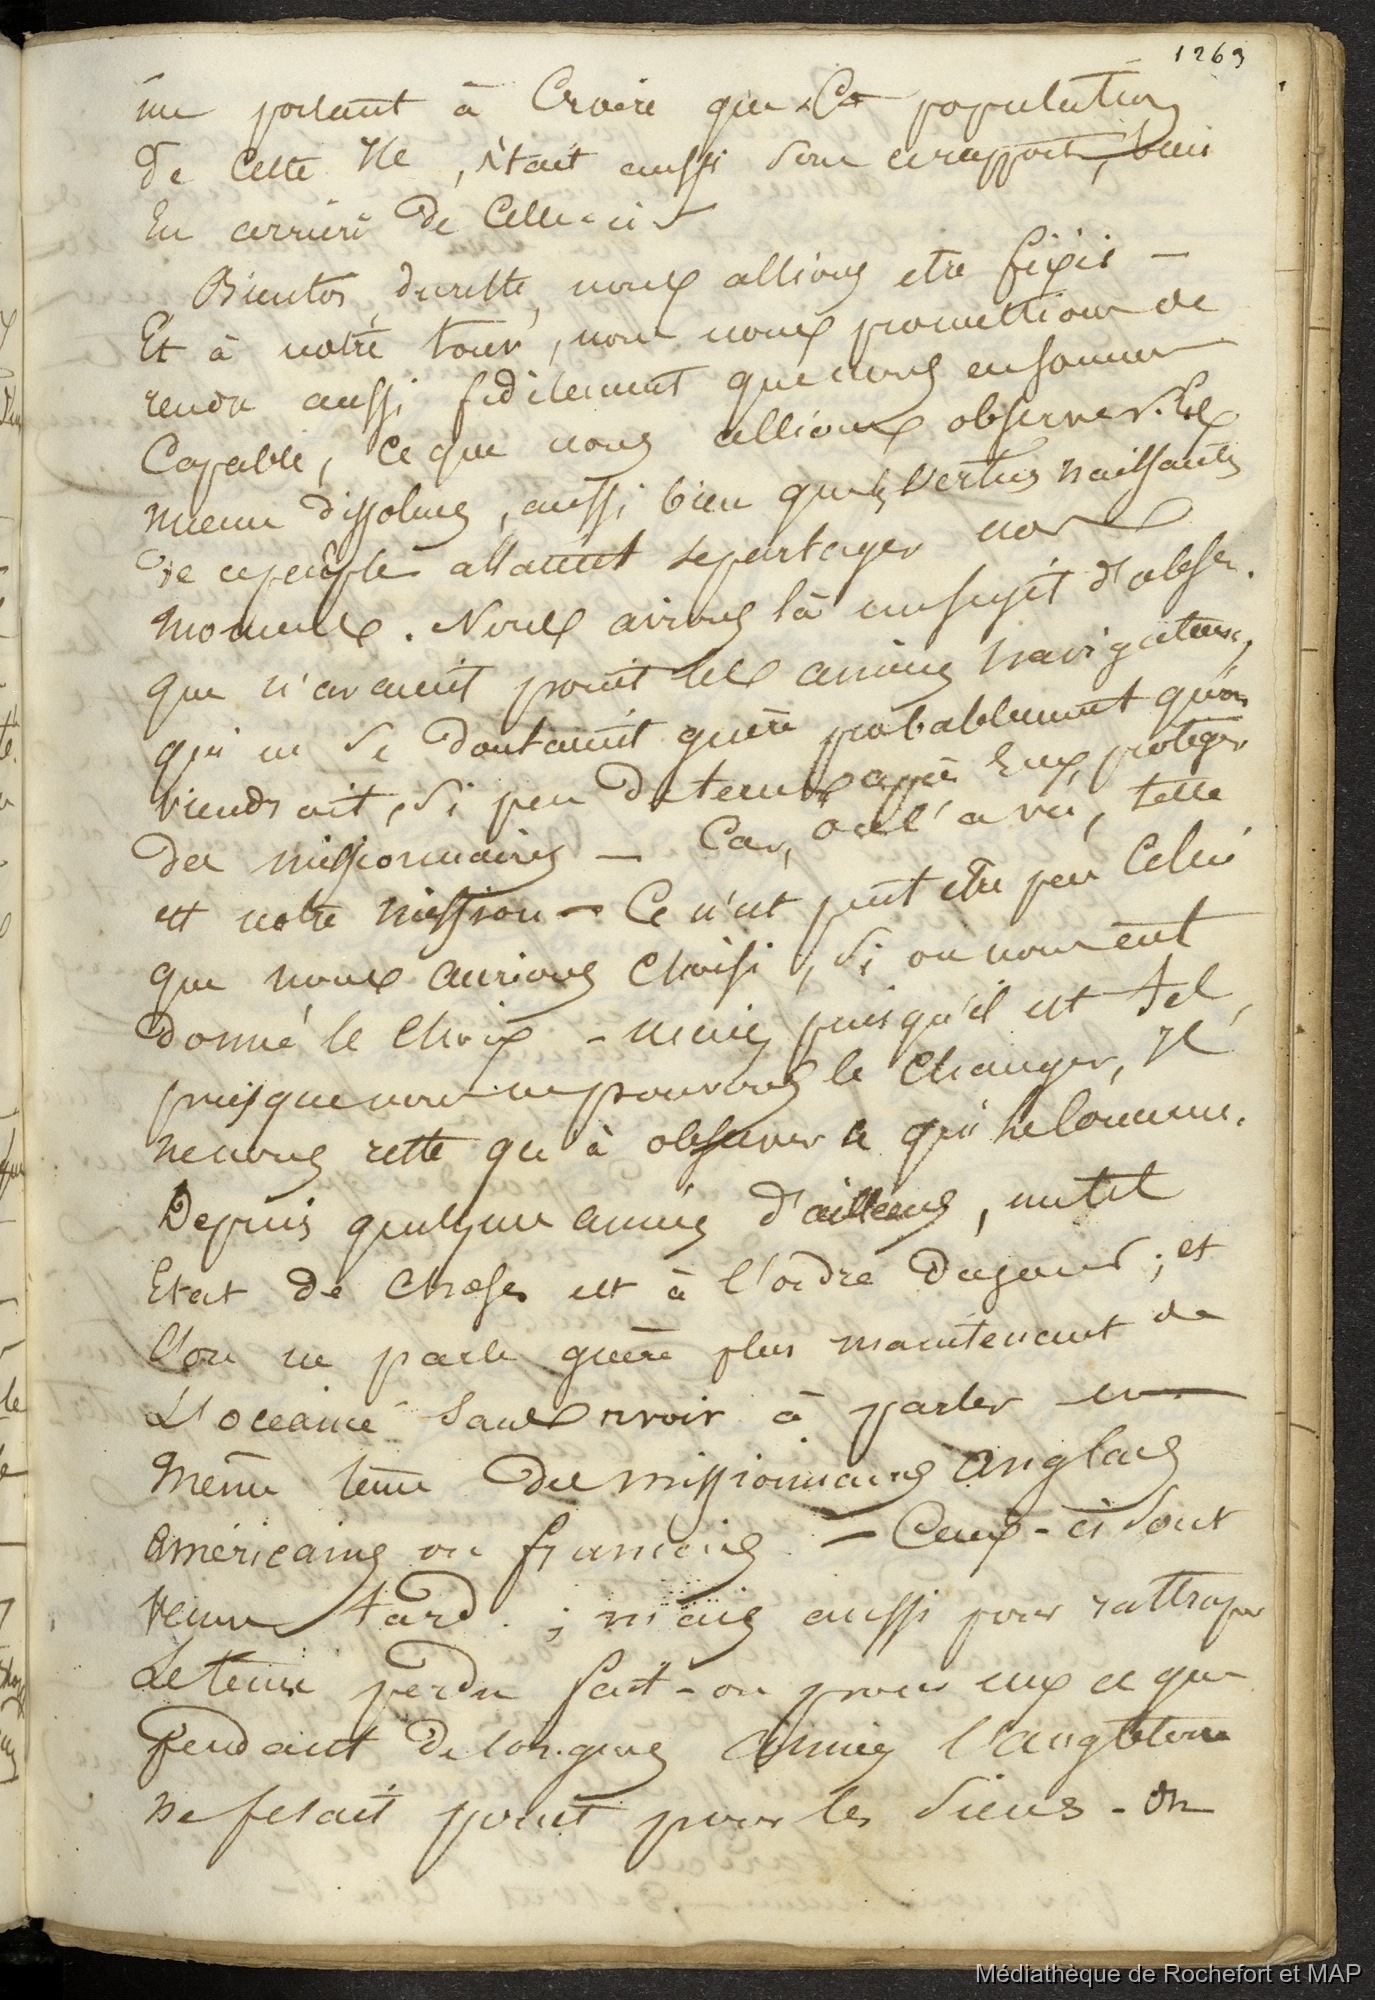 1263
me portant à Croire que la population
de Cette Ile, était aussi sous ce rapport, bien
En arriere de Celle-ci
Bientot, dureste, nous allions etre fixés -
Et à notre tour, nous nous promettions de
rendre aussi fidèlement que nous en sommes
Capable, ce que nous allions observer. Les
mœurs dissolues, aussi bien que les vertus naissantes
de ce peuple allaient se partager nos
moments. Nous avions là un sujet d'obser.
que n'avaient point les anciens navigateurs,
qui ne se doutaient guère probablement qu'on
viendrait, si peu de tems après Eux, protéger
des missionnaires - Car, on l'a vu, telle
est notre mission - Ce n'est peut etre pas Celui
que nous aurions choisi, si on nous eut
donné le choix - mais puisqu'il est tel,
puisque nous ne pouvons le changer, Il
ne nous reste qu'à observer ce qui le concerne.
Depuis quelques années d'ailleurs, un tel
Etat de choses est à l'ordre du jour; et
l'on ne parle guère plus maintenant de
L'océanie sans avoir à parler en
même tems des missionnaires anglais
américains ou français - Ceux-ci sont
venus tard; mais aussi pour rattraper
Le tems perdu fait-on pour eux ce que
pendant de longues années l'angleterre
ne fesait point pour les siens - On
Médiathèque de Rochefort et MAP